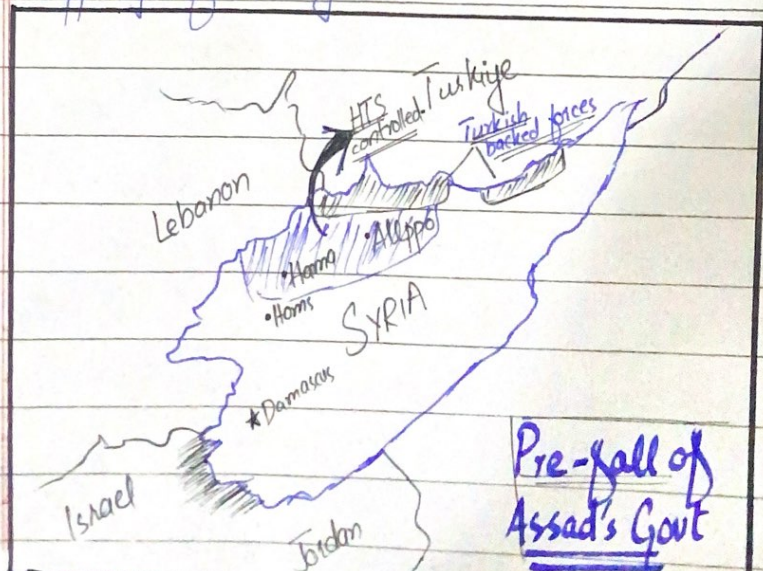 HTS
controlled
Turkiye
Turkish
backed forces
Lebanon
Aleppo
Hama
Homs
SYRIA
Damascus
Israel
Jordan
Pre-fall of
Assad's Govt